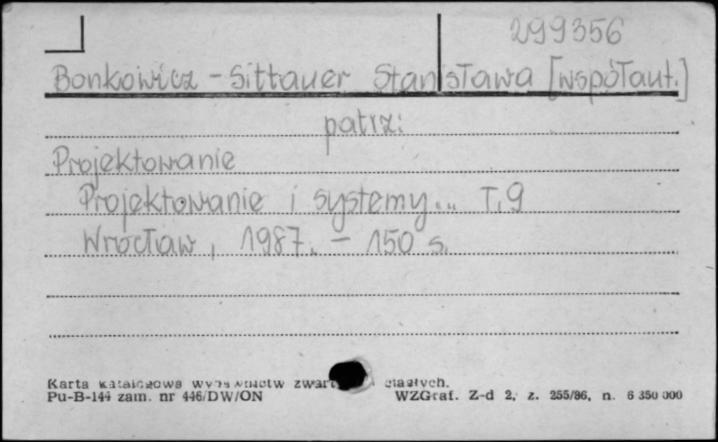 299356
Bonkowicz - Sittauer Stanisława [współaut.]
patrz:
Projektowanie
Projektowanie i systemy... T.9
Wrocław, 1987. - 150 s.
Karta katalogowa wydawnictw zwart ciągłych.
Pu-B-144 zam. nr 446/DW/ON WZGraf. Z-d 2, z. 255/86, n. 6 350 000